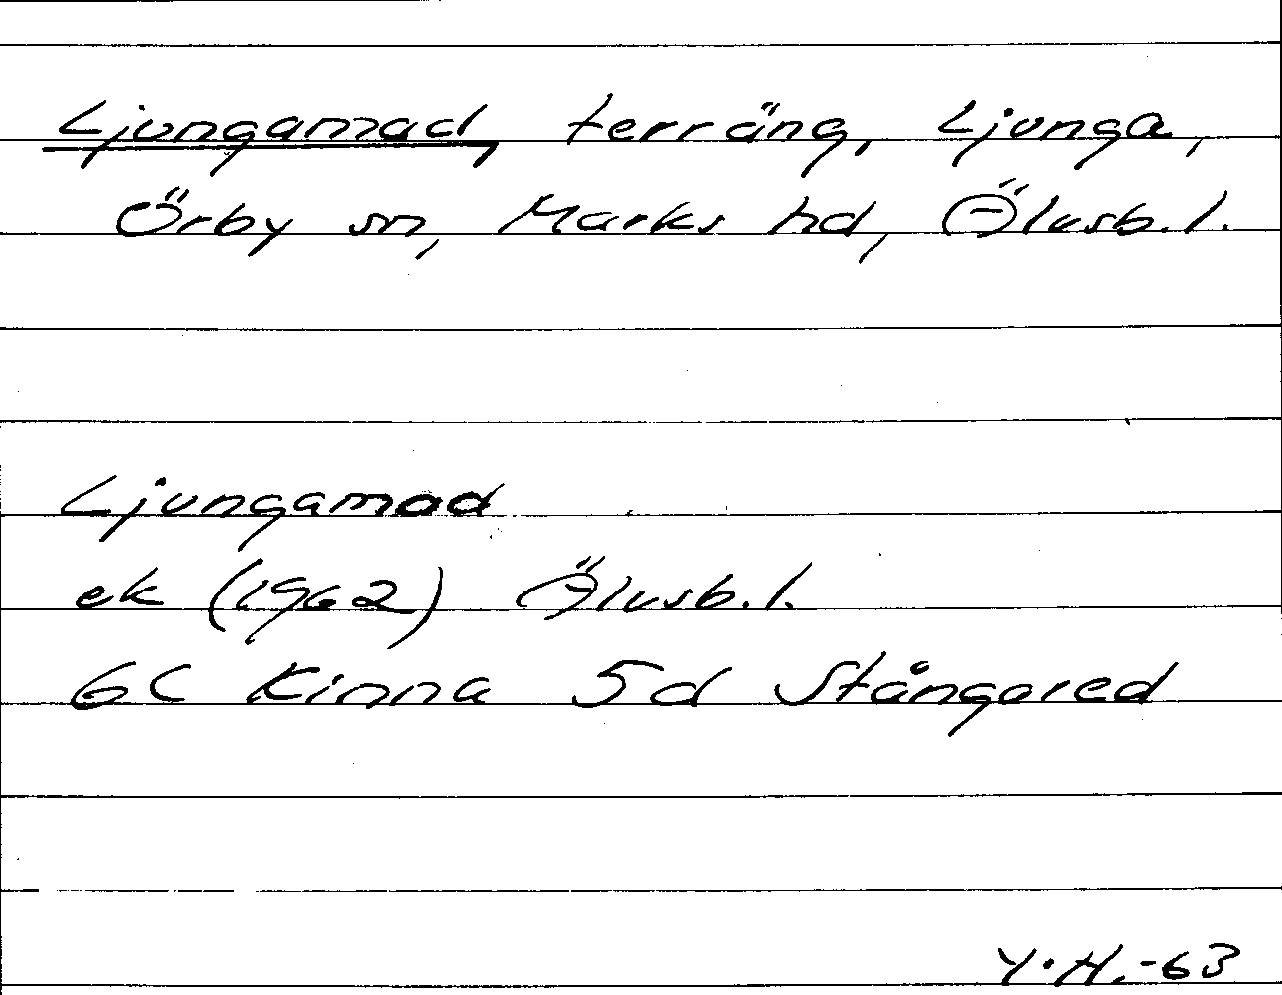 Ljungamad, terräng, Ljunga,
Örby sn, Marks hd, Älvsb. l.
Ljungamad
ek (1962) Älvsb. l.
6C Kinna 5d Stångared
Y.H.-63